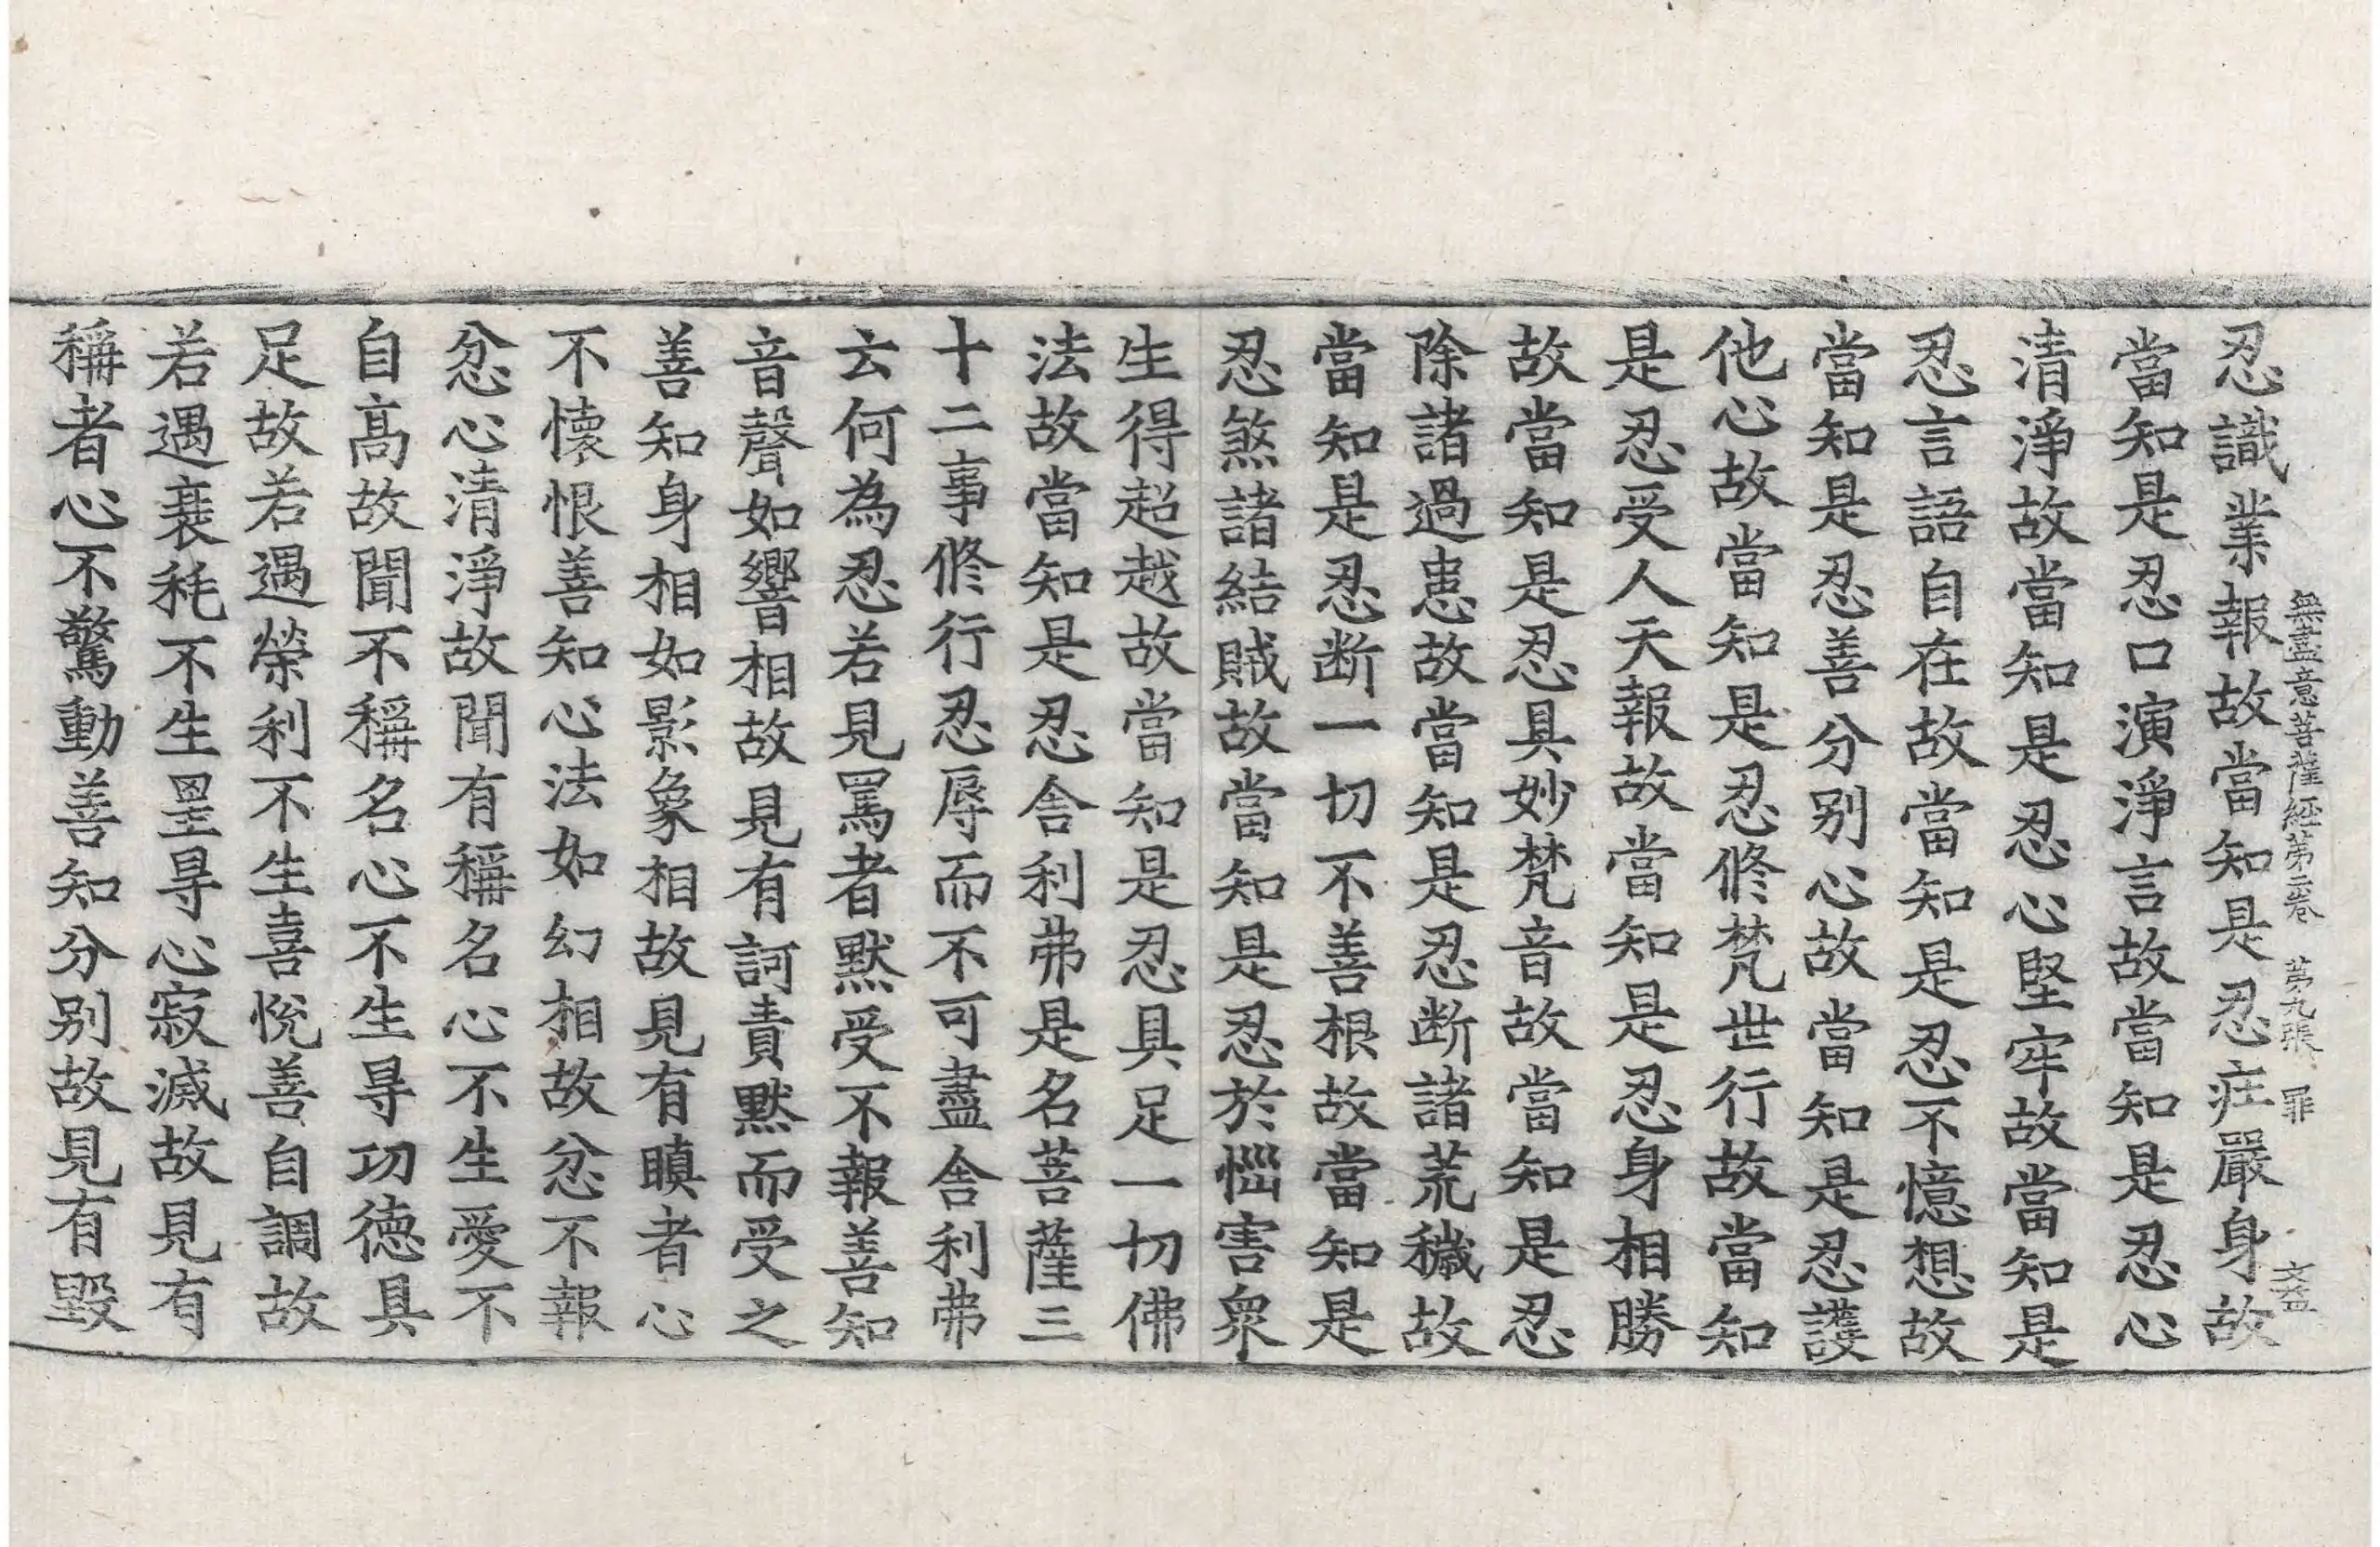 無盡意菩薩經第二卷 第九張 罪
忍識業報故當知是忍庄嚴身故
當知是忍口演淨言故當知是忍心
清淨故當知是忍心堅牢故當知是
忍言語自在故當知是忍不憶想故
當知是忍善分别心故當知是忍護
他心故當知是忍修梵世行故當知
是忍受人天報故當知是忍身相勝
故當知是忍具妙梵音故當知是忍
除諸過患故當知是忍断諸荒穢故
當知是忍断一切不善根故當知是
忍煞諸結賊故當知是忍於惱害衆
生得超越故當知是忍具足一切佛
法故當知是忍舍利弗是名菩薩三
十二事修行忍辱而不可盡舍利弗
云何為忍若見罵者黙受不報善知
音聲如響相故見有訶責黙而受之
善知身相如影象相故見有瞋者心
不懐恨善知心法如幻相故忿不報
忿心清淨故聞有稱名心不生愛不
自髙故聞不稱名心不生㝵功徳具
足故若遇榮利不生喜悅善自調故
若遇衰秏不生罣㝵心寂滅故見有
稱者心不驚動善知分别故見有毀